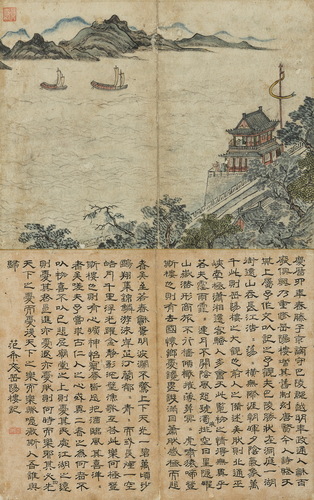 慶曆四年春滕子京謫守巴陵越明年政通人和百
廢俱興乃重脩岳陽樓增其舊制刻唐賢今人詩賦于
其上屬予作文以記之予觀夫巴陵勝狀在洞庭一湖
銜遠山吞長江浩浩湯湯橫無際涯朝暉夕陰氣象萬
千此則岳陽樓之大觀也前人之述備矣然則北通巫
峽南極瀟湘遷客騷人多會于此覽物之情得無異乎
若夫霪雨霏霏連月不開陰風怒號濁浪排空日星隱曜
山岳潛形商旅不行檣傾楫摧薄暮冥冥虎嘯猿啼登
斯樓也則有去國懷鄉憂讒畏譏滿目蕭然感極而悲
者矣至若春和景明波瀾不驚上下天光一碧萬頃沙
鷗翔集錦鱗游泳岸芷汀蘭郁郁青青而或長煙一空
皓月千里浮光躍金靜影沉璧漁歌互答此樂何極登
斯樓也則有心曠神怡寵辱皆忘把酒臨風其喜洋洋
者矣嗟夫予嘗求古仁人之心或異二者之為何哉不
以物喜不以己悲居廟堂之上則憂其民處江湖之遠
則憂其君是進亦憂退亦憂然則何時而樂耶其必曰先
天下之憂而憂後天下之樂而樂歟噫微斯人吾誰與
歸 范希文岳陽樓記